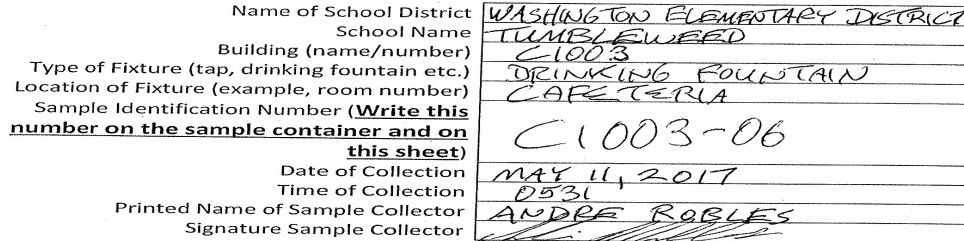 Name of School District WASHINGTON ELEMENTARY DISTRICT
School Name TUMBLEWEED
Building (name/number) C1003
Type of Fixture (tap, drinking fountain etc.) DRINKING FOUNTAIN
Location of Fixture (example, room number) CAFETERIA
Sample Identification Number (Write this
number on the sample container and on C1003-06
this sheet)
Date of Collection MAY 11, 2017
Time of Collection 0531
Printed Name of Sample Collector ANDRE ROBLES
Signature Sample Collector